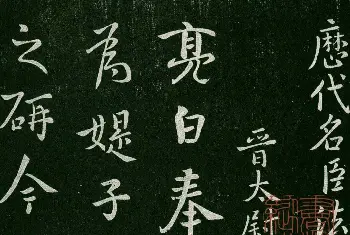 歷代名臣法
晉太尉
亮白奉
為媞子
之硏今